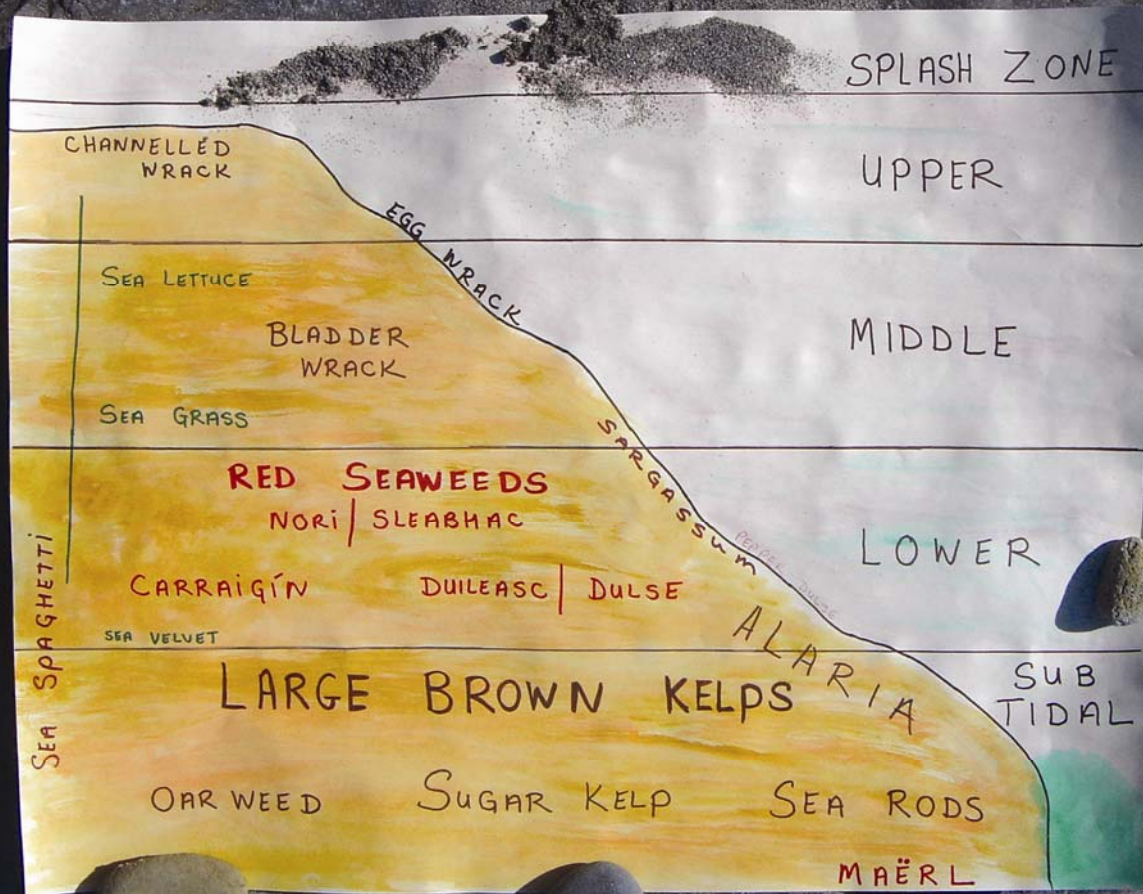 SPLASH ZONE
CHANNELLED
WRACK
UPPER
EGG WRACK
SEA LETTUCE
BLADDER
WRACK
MIDDLE
SEA GRASS
SARGASSUM
RED SEAWEEDS
NORI | SLEABHAC
PEPPER DULSE
LOWER
CARRAIGÍN
DUILEASC | DULSE
SEA VELVET
ALARIA
SEA SPAGHETTI
LARGE BROWN KELPS
SUB
TIDAL
OAR WEED
SUGAR KELP
SEA RODS
MAËRL